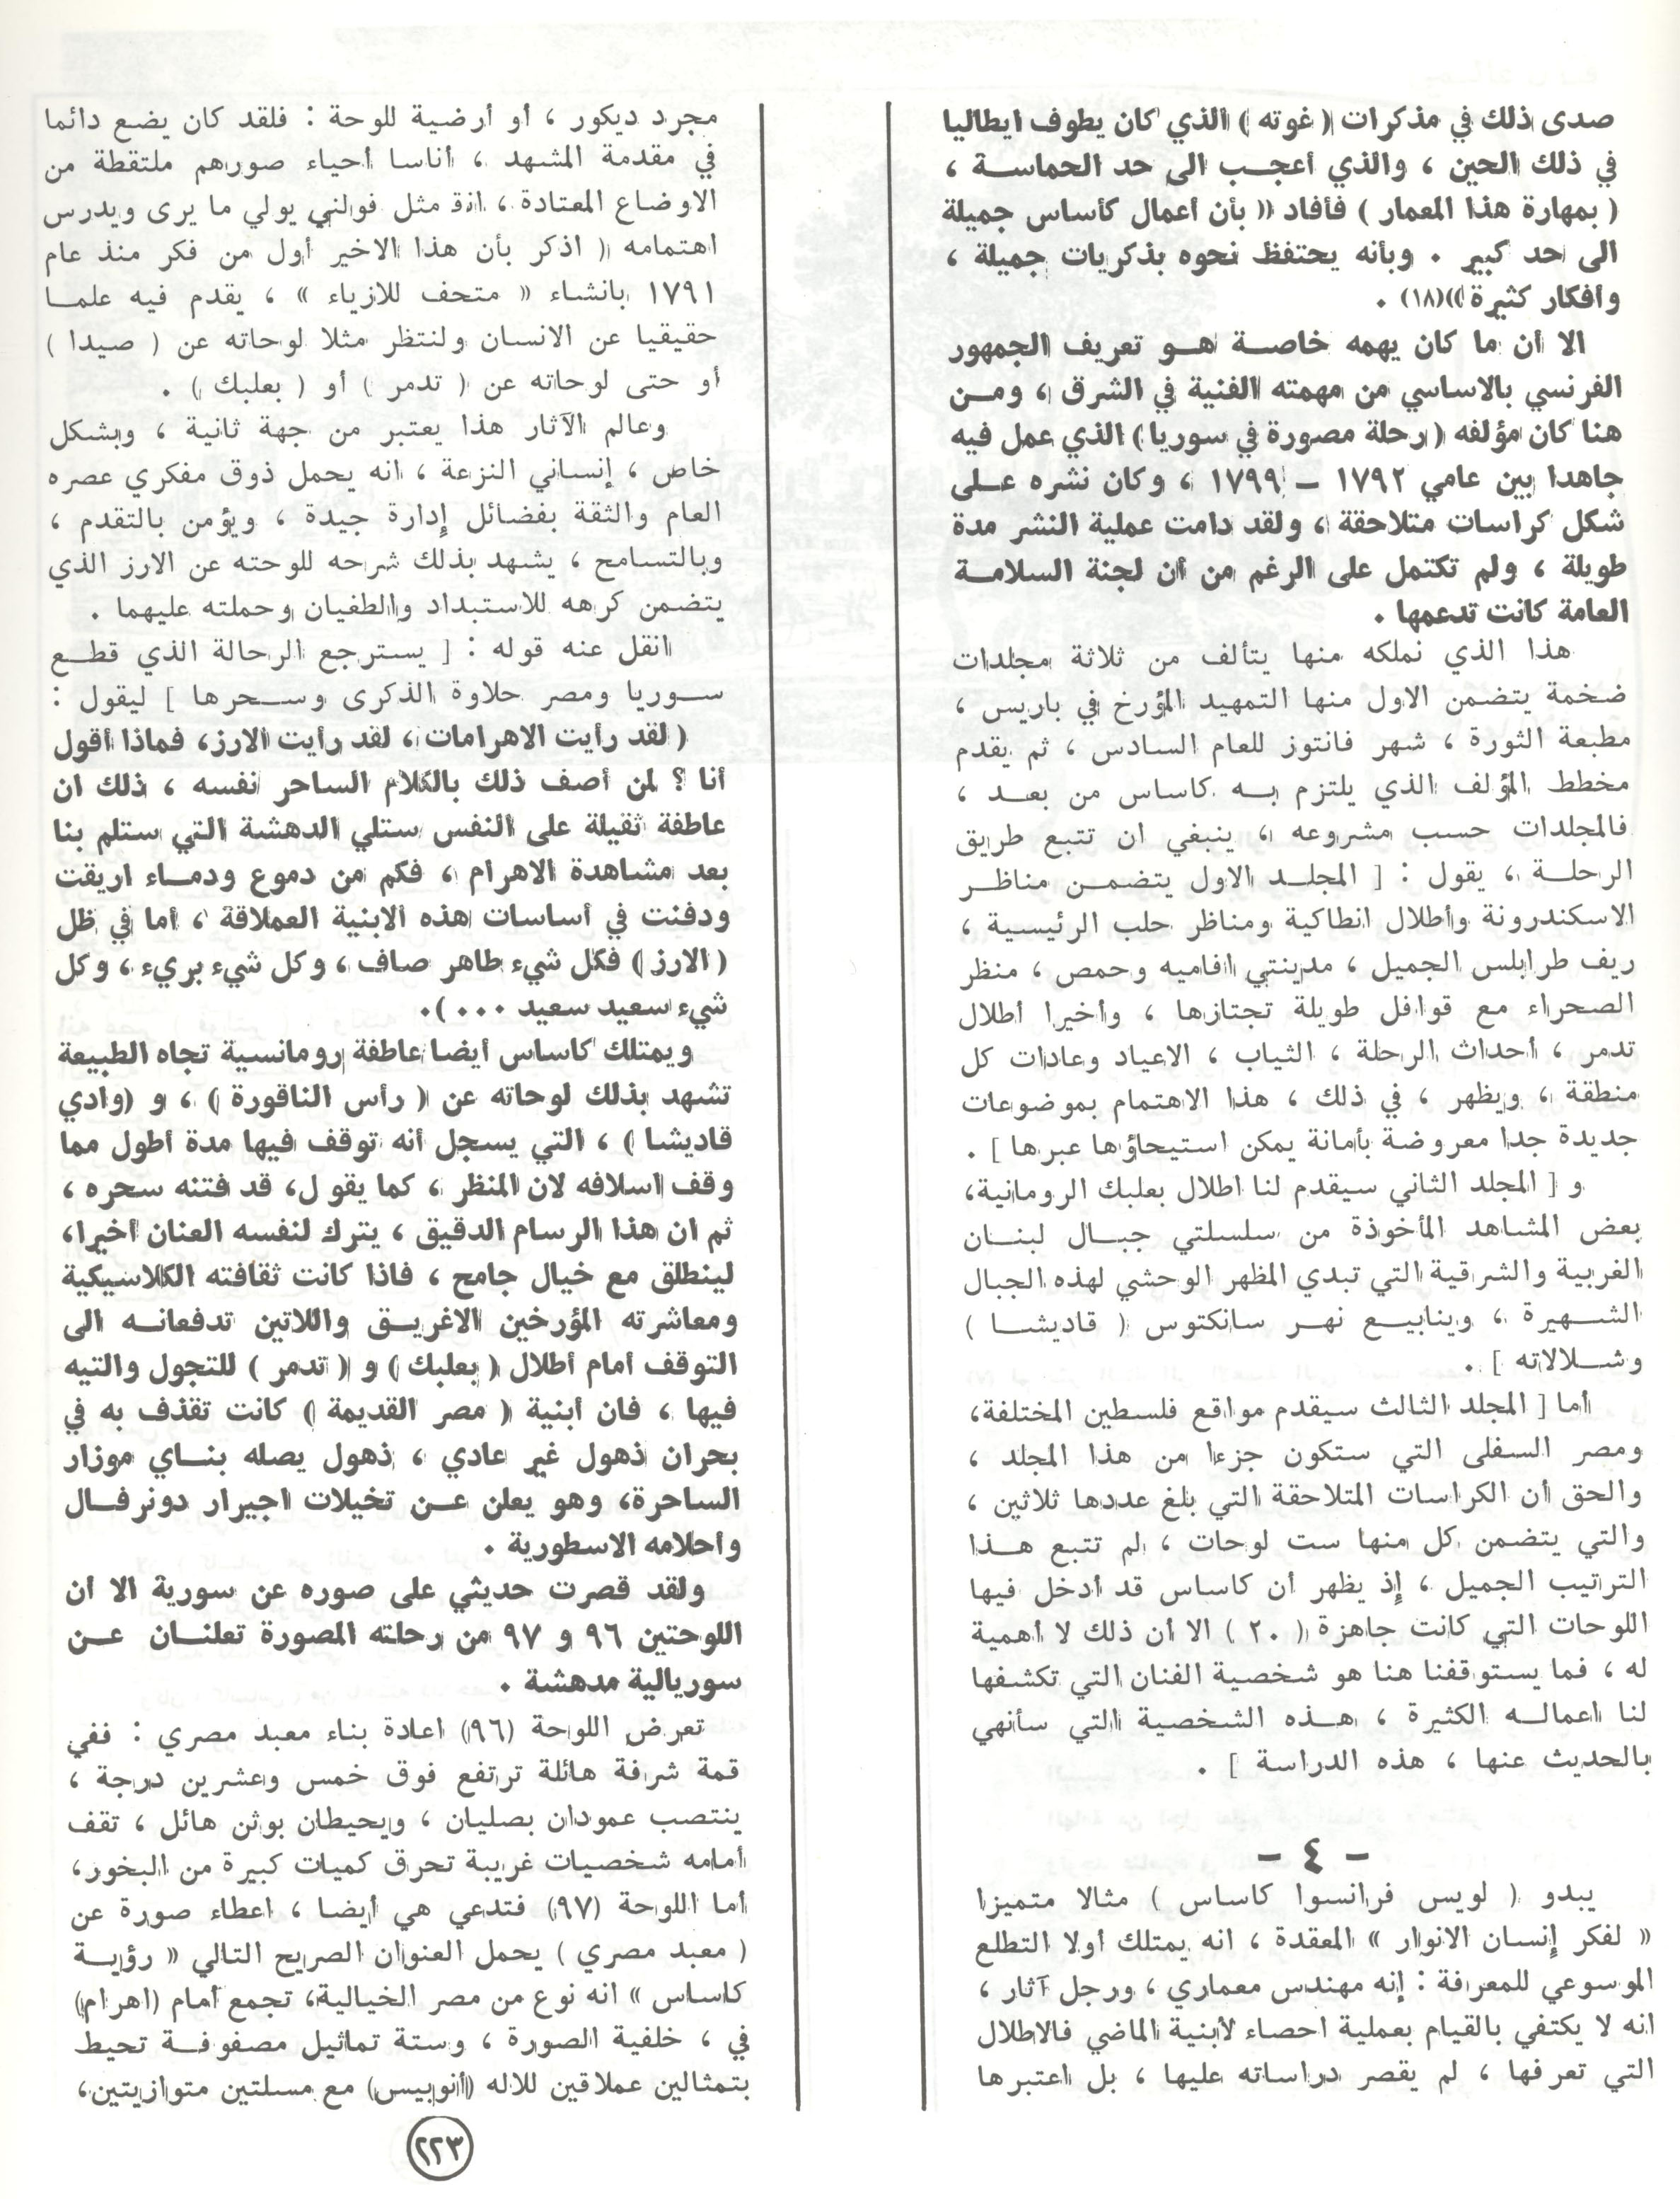 صدى ذلك في مذكرات ( غوته ) الذي كان يطوف ايطاليا
في ذلك الحين ، والذي أعجب الى حد الحماسة ،
( بمهارة هذا المعمار ) فأفاد (( بأن أعمال كأساس جميلة
الى حد كبير . وبأنه يحتفظ نحوه بذكريات جميلة ،
وأفكار كثيرة ))(١٨) .
الا أن ما كان يهمه خاصة هو تعريف الجمهور
الفرنسي بالاساسي من مهمته الفنية في الشرق ، ومن
هنا كان مؤلفه ( رحلة مصورة في سوريا ) الذي عمل فيه
جاهدا بين عامي ١٧٩٢ – ١٧٩٩ ، وكان نشره على
شكل كراسات متلاحقة ، ولقد دامت عملية النشر مدة
طويلة ، ولم تكتمل على الرغم من أن لجنة السلامة
العامة كانت تدعمها .
هذا الذي نملكه منها يتألف من ثلاثة مجلدات
ضخمة يتضمن الاول منها التمهيد المؤرخ في باريس ،
مطبعة الثورة ، شهر فانتوز للعام السادس ، ثم يقدم
مخطط المؤلف الذي يلتزم به كاساس من بعد ،
فالمجلدات حسب مشروعه ، ينبغي ان تتبع طريق
الرحلة ، يقول : [ المجلد الاول يتضمن مناظر
الاسكندرونة وأطلال انطاكية ومناظر حلب الرئيسية ،
ريف طرابلس الجميل ، مدينتي افاميه وحمص ، منظر
الصحراء مع قوافل طويلة تجتازها ، وأخيرا أطلال
تدمر ، أحداث الرحلة ، الثياب ، الاعياد وعادات كل
منطقة ، ويظهر ، في ذلك ، هذا الاهتمام بموضوعات
جديدة جدا معروضة بأمانة يمكن استيحاؤها عبرها ] .
و [ المجلد الثاني سيقدم لنا اطلال بعلبك الرومانية،
بعض المشاهد المأخوذة من سلسلتي جبال لبنان
الغربية والشرقية التي تبدي المظهر الوحشي لهذه الجبال
الشهيرة ، وينابيع نهر سانكتوس ( قاديشا )
وشلالاته ] .
أما [ المجلد الثالث سيقدم مواقع فلسطين المختلفة،
ومصر السفلى التي ستكون جزءا من هذا المجلد ،
والحق أن الكراسات المتلاحقة التي بلغ عددها ثلاثين ،
والتي يتضمن كل منها ست لوحات ، لم تتبع هذا
الترتيب الجميل ، إذ يظهر أن كاساس قد أدخل فيها
اللوحات التي كانت جاهزة ( ٢٠ ) الا أن ذلك لا أهمية
له ، فما يستوقفنا هنا هو شخصية الفنان التي تكشفها
لنا اعماله الكثيرة ، هذه الشخصية التي سأنهي
بالحديث عنها ، هذه الدراسة ] .
– ٤ –
يبدو ( لويس فرانسوا كاساس ) مثالا متميزا
« لفكر إنسان الانوار » المعقدة ، انه يمتلك أولا التطلع
الموسوعي للمعرفة : إنه مهندس معماري ، ورجل آثار ،
انه لا يكتفي بالقيام بعملية احصاء لأبنية الماضي فالاطلال
التي تعرفها ، لم يقصر دراساته عليها ، بل اعتبرها
مجرد ديكور ، أو أرضية للوحة : فلقد كان يضع دائما
في مقدمة المشهد ، أناسا أحياء صورهم ملتقطة من
الاوضاع المعتادة ، انه مثل فولني يولي ما يرى ويدرس
اهتمامه ( اذكر بأن هذا الاخير أول من فكر منذ عام
١٧٩١ بانشاء « متحف للازياء » ، يقدم فيه علما
حقيقيا عن الانسان ولنتظر مثلا لوحاته عن ( صيدا )
أو حتى لوحاته عن ( تدمر ) أو ( بعلبك ) .
وعالم الآثار هذا يعتبر من جهة ثانية ، وبشكل
خاص ، إنساني النزعة ، انه يحمل ذوق مفكري عصره
العام والثقة بفضائل إدارة جيدة ، ويؤمن بالتقدم ،
وبالتسامح ، يشهد بذلك شرحه للوحته عن الارز الذي
يتضمن كرهه للاستبداد والطغيان وحملته عليهما .
انقل عنه قوله : [ يسترجع الرحالة الذي قطع
سوريا ومصر حلاوة الذكرى وسحرها ] ليقول :
( لقد رأيت الاهرامات ، لقد رأيت الارز، فماذا أقول
أنا ؟ لمن أصف ذلك بالكلام الساحر نفسه ، ذلك ان
عاطفة ثقيلة على النفس ستلي الدهشة التي ستلم بنا
بعد مشاهدة الاهرام ، فكم من دموع ودماء اريقت
ودفنت في أساسات هذه الابنية العملاقة ، أما في ظل
( الارز ) فكل شيء طاهر صاف ، وكل شيء بريء ، وكل
شيء سعيد سعيد ... ).
ويمتلك كاساس أيضا عاطفة رومانسية تجاه الطبيعة
تشهد بذلك لوحاته عن ( رأس الناقورة ) ، و ( وادي
قاديشا ) ، التي يسجل أنه توقف فيها مدة أطول مما
وقف اسلافه لان المنظر ، كما يقول، قد فتنه سحره ،
ثم ان هذا الرسام الدقيق ، يترك لنفسه العنان اخيرا،
لينطلق مع خيال جامح ، فاذا كانت ثقافته الكلاسيكية
ومعاشرته المؤرخين الاغريق واللاتين تدفعانه الى
التوقف أمام أطلال ( بعلبك ) و ( تدمر ) للتجول والتيه
فيها ، فان أبنية ( مصر القديمة ) كانت تقذف به في
بحران ذهول غير عادي ، ذهول يصله بناي موزار
الساحرة، وهو يعلن عن تخيلات اجيرار دونرفال
وأحلامه الاسطورية .
ولقد قصرت حديثي على صوره عن سورية الا أن
اللوحتين ٩٦ و ٩٧ من رحلته المصورة تعلنان عن
سوريالية مدهشة .
تعرض اللوحة (٩٦) اعادة بناء معبد مصري : ففي
قمة شرفة هائلة ترتفع فوق خمس وعشرين درجة ،
ينتصب عمودان بصليان ، ويحيطان بوثن هائل ، تقف
أمامه شخصيات غريبة تحرق كميات كبيرة من البخور،
أما اللوحة (٩٧) فتدعي هي أيضا ، اعطاء صورة عن
( معبد مصري ) يحمل العنوان الصريح التالي « رؤية
كاساس » انه نوع من مصر الخيالية، تجمع أمام (اهرام)
في ، خلفية الصورة ، وستة تماثيل مصفوفة تحيط
بتمثالين عملاقين للاله (أنوبيس) مع مسلتين متوازيتين،
٢٢٣